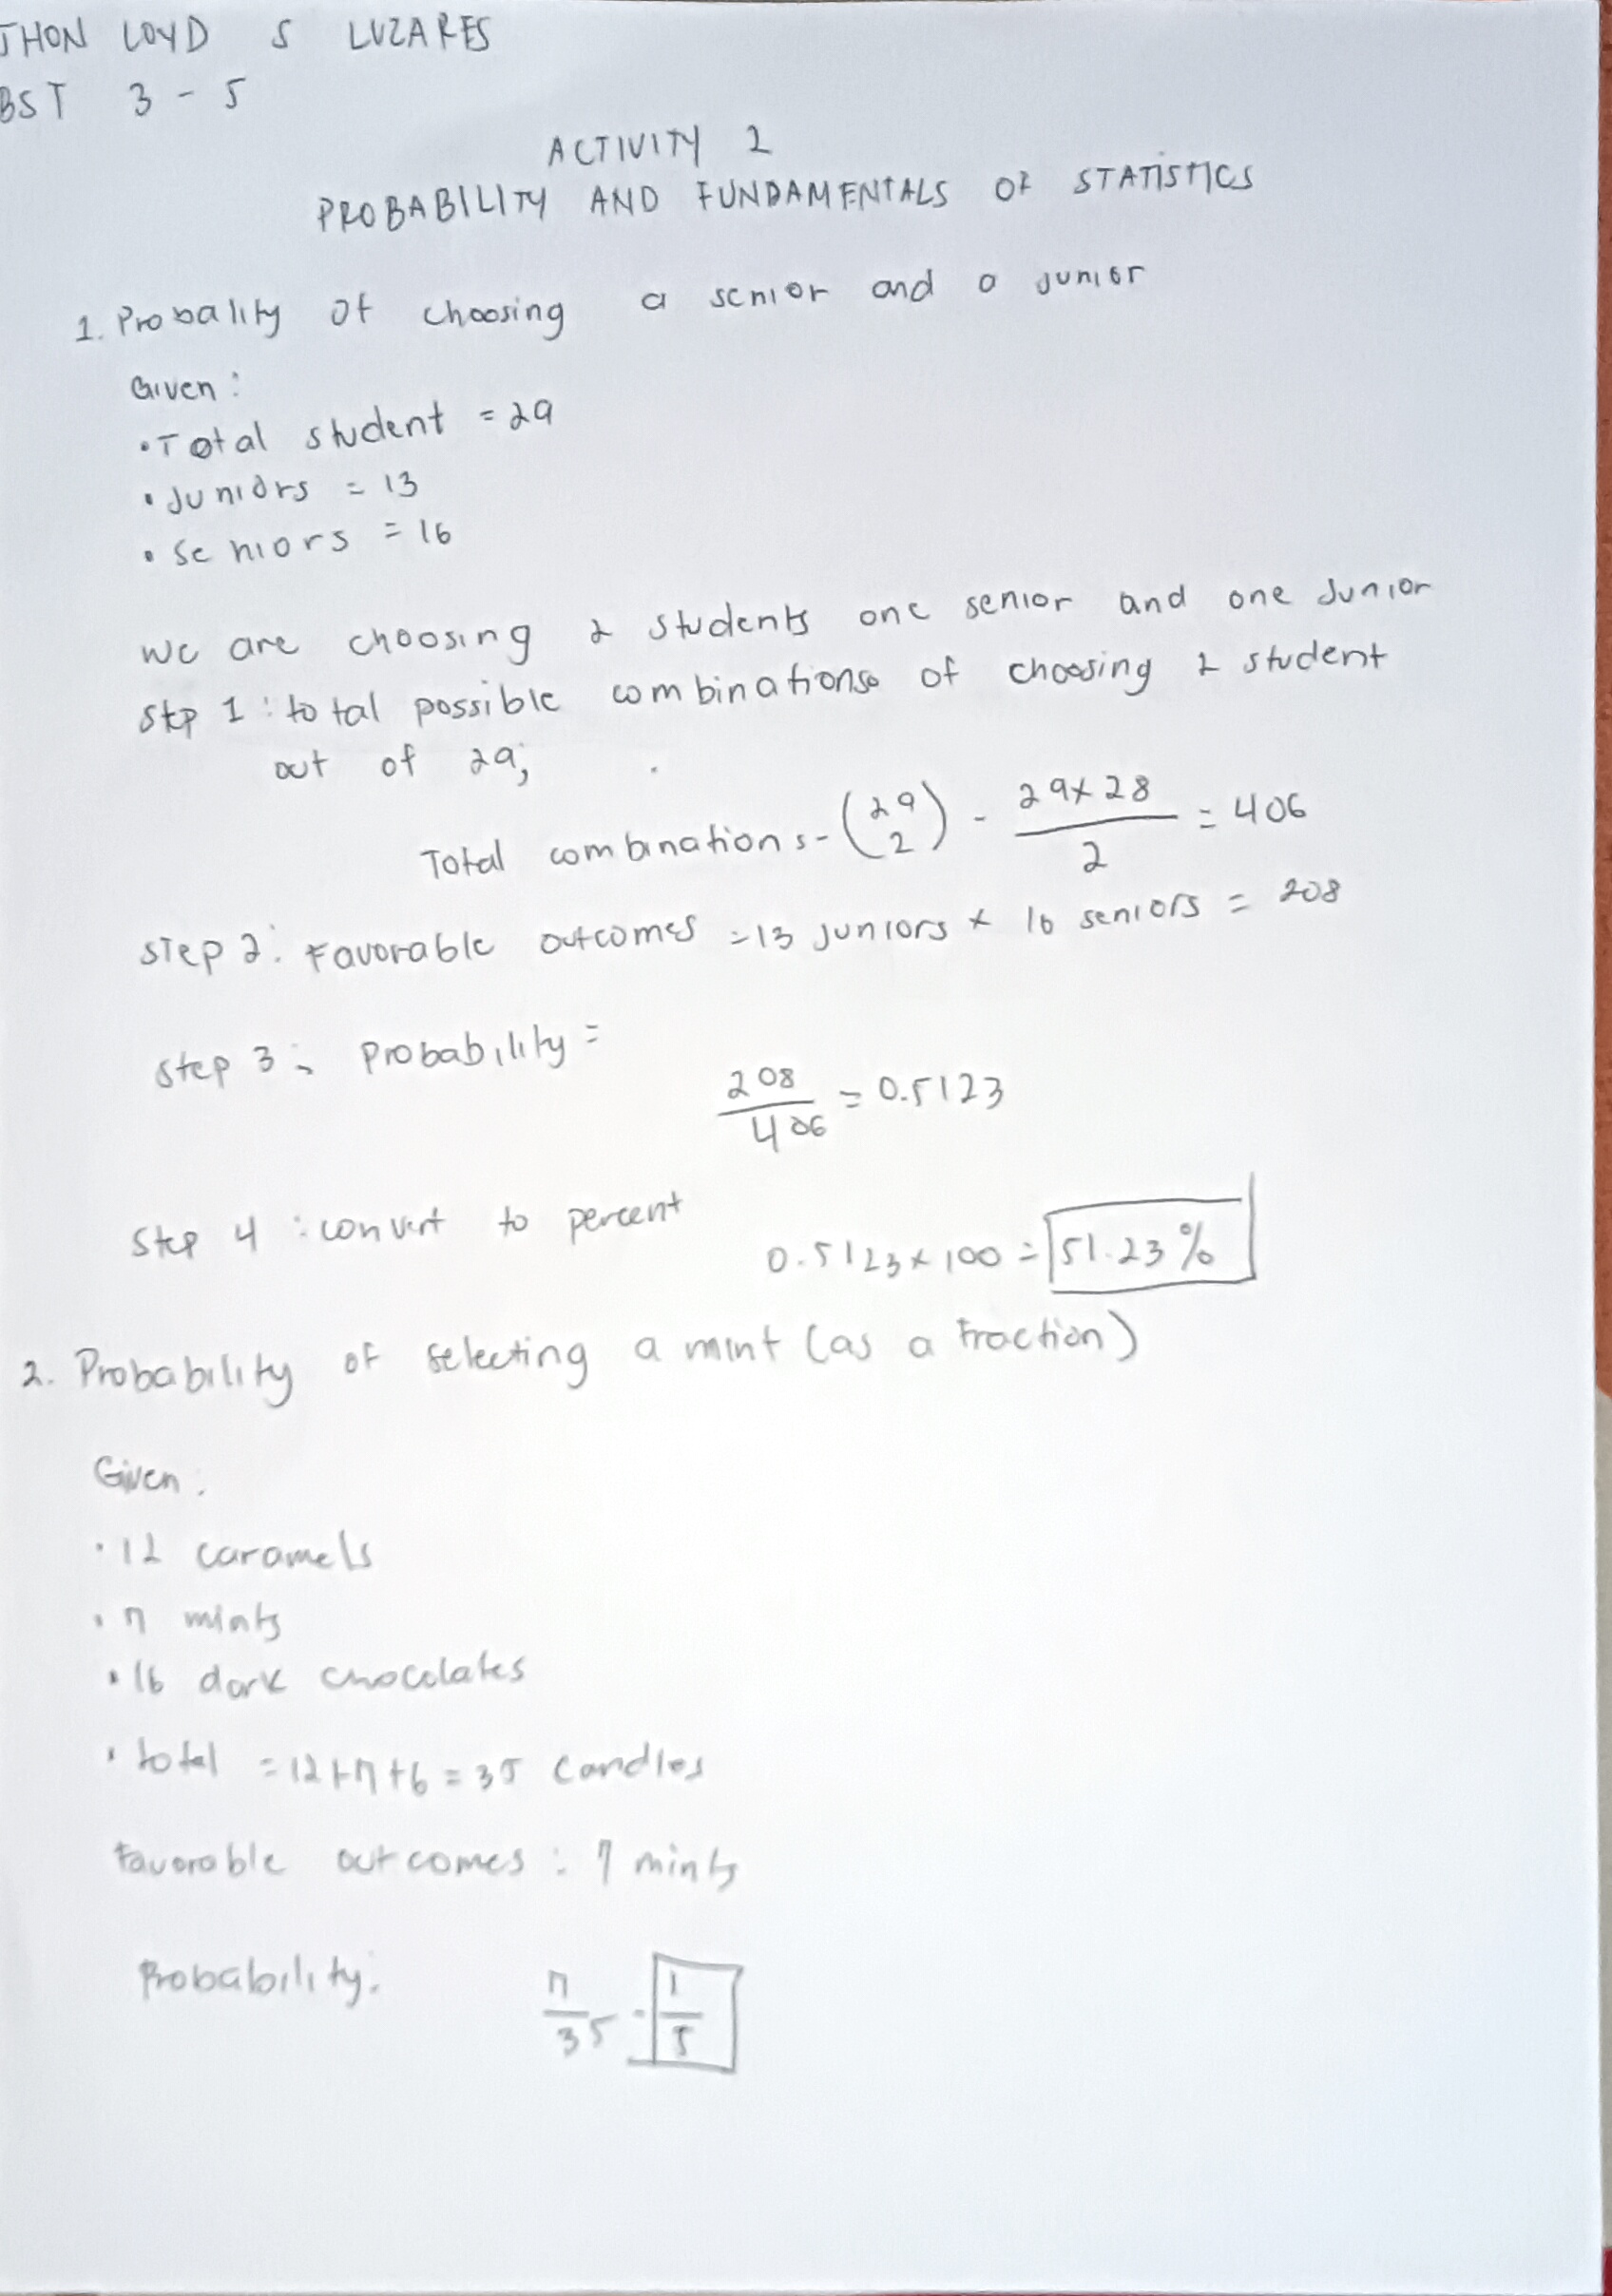 JHON LOYD S LUZARES
BST 3-5
ACTIVITY 2
PROBABILITY AND FUNDAMENTALS OF STATISTICS
1. Probality of choosing a senior and a junior
Given:
• Total student = 29
• Juniors = 13
• Seniors = 16
we are choosing 2 students one senior and one Junior
Step 1: total possible combinations of choosing 2 student
out of 29;
Total combinations - (29 2) - 29x28/2 = 406
Step 2: Favorable outcomes = 13 juniors x 16 seniors = 208
Step 3: Probability =
208/406 = 0.5123
Step 4: convert to percent
0.5123 x 100 = 51.23%
2. Probability of selecting a mint (as a fraction)
Given:
• 12 caramels
• 7 mints
• 16 dark chocolates
• total = 12+7+6 = 35 candles
Favorable outcomes: 7 mints
Probability:
7/35 = 1/5